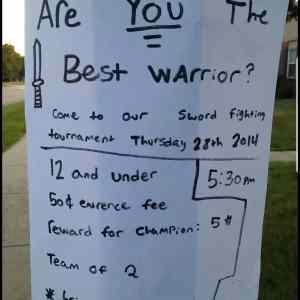 Are YOU The
Best warrior?
Come to our Sword fighting
tournament Thursday 28th 2014
12 and under
5:30 pm
50¢ enrence fee
reward for champion: 5$
Team of 2
*